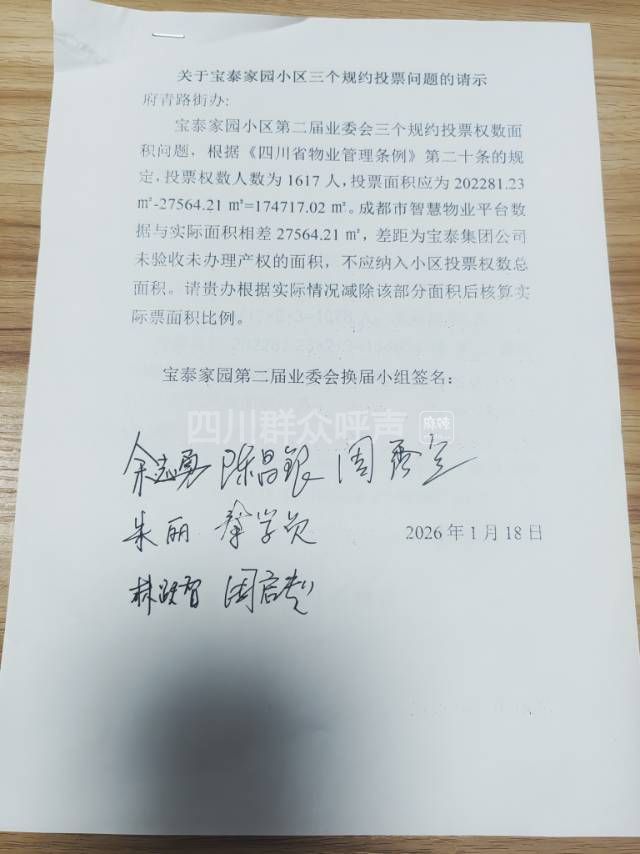 关于宝泰家园小区三个规约投票问题的请示
府青路街办:
宝泰家园小区第二届业委会三个规约投票权数面
积问题，根据《四川省物业管理条例》第二十条的规
定，投票权数人数为1617人，投票面积应为202281.23
㎡-27564.21㎡=174717.02㎡。成都市智慧物业平台数
据与实际面积相差27564.21㎡，差距为宝泰集团公司
未验收未办理产权的面积，不应纳入小区投票权数总
面积。请贵办根据实际情况减除该部分面积后核算实
际票面积比例。
宝泰家园第二届业委会换届小组签名：
四川群众呼声 麻辣
余志勇 陈昌银
朱丽
2026年1月18日